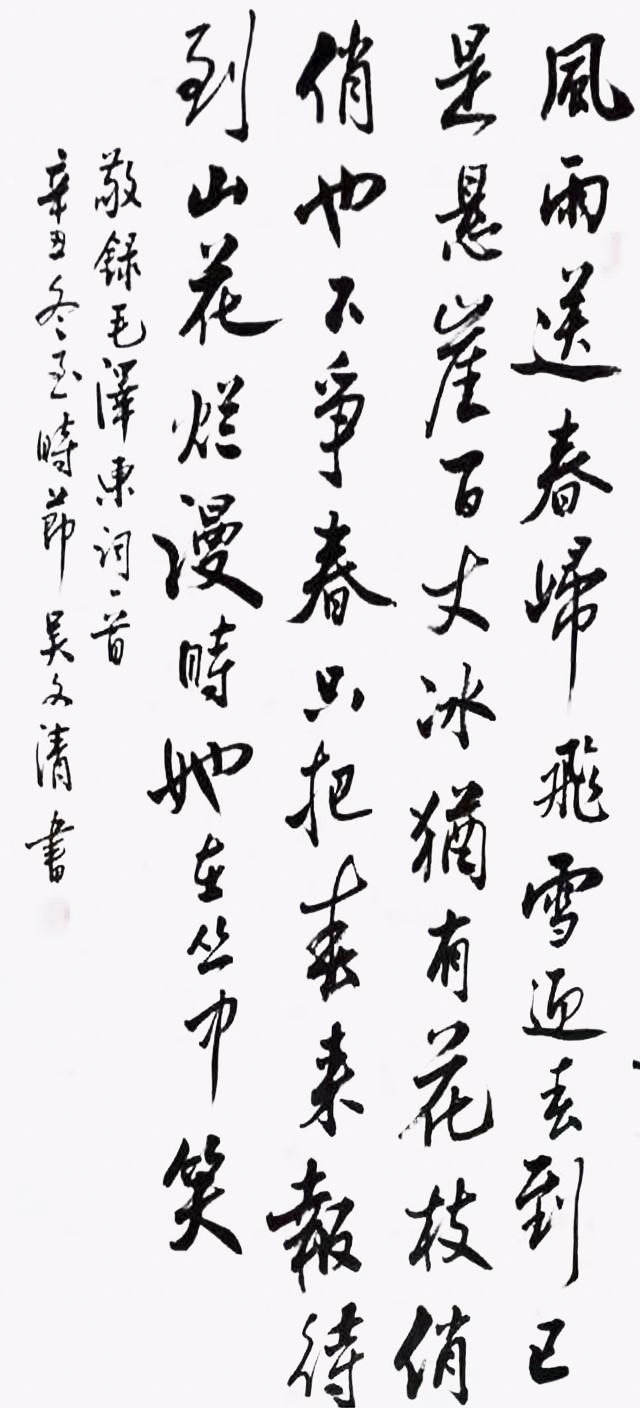 風雨送春歸飛雪迎春到已
是悬崖百丈冰猶有花枝俏
俏也不爭春只把春来報待
到山花烂漫時她在丛中笑
敬録毛澤東词一首
辛丑冬至時節吴文清書